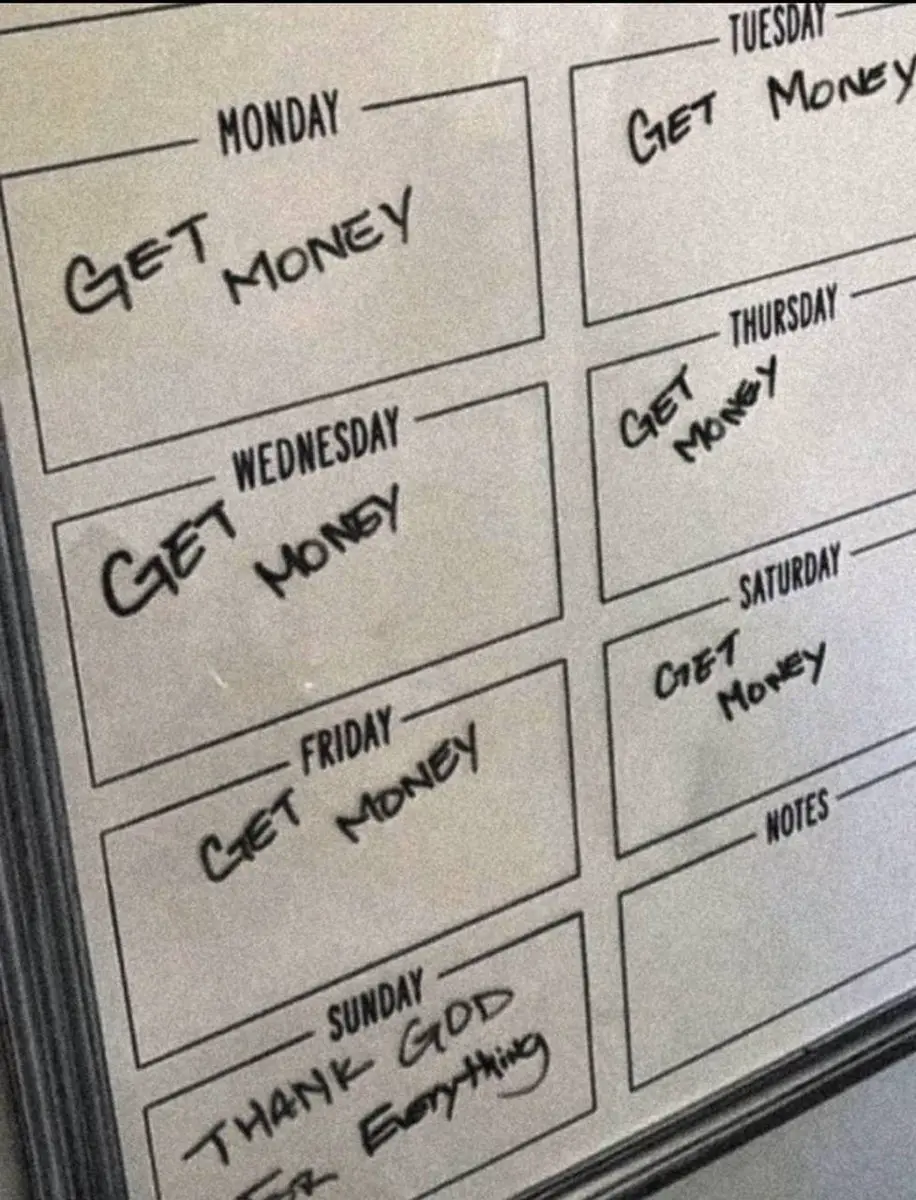 MONDAY
GET
MONEY
TUESDAY
GET MONEY
WEDNESDAY
GET
MONEY
THURSDAY
GET
MONEY
FRIDAY
GET MONEY
SATURDAY
GET
MONEY
SUNDAY
THANK GOD
FOR Everything
NOTES